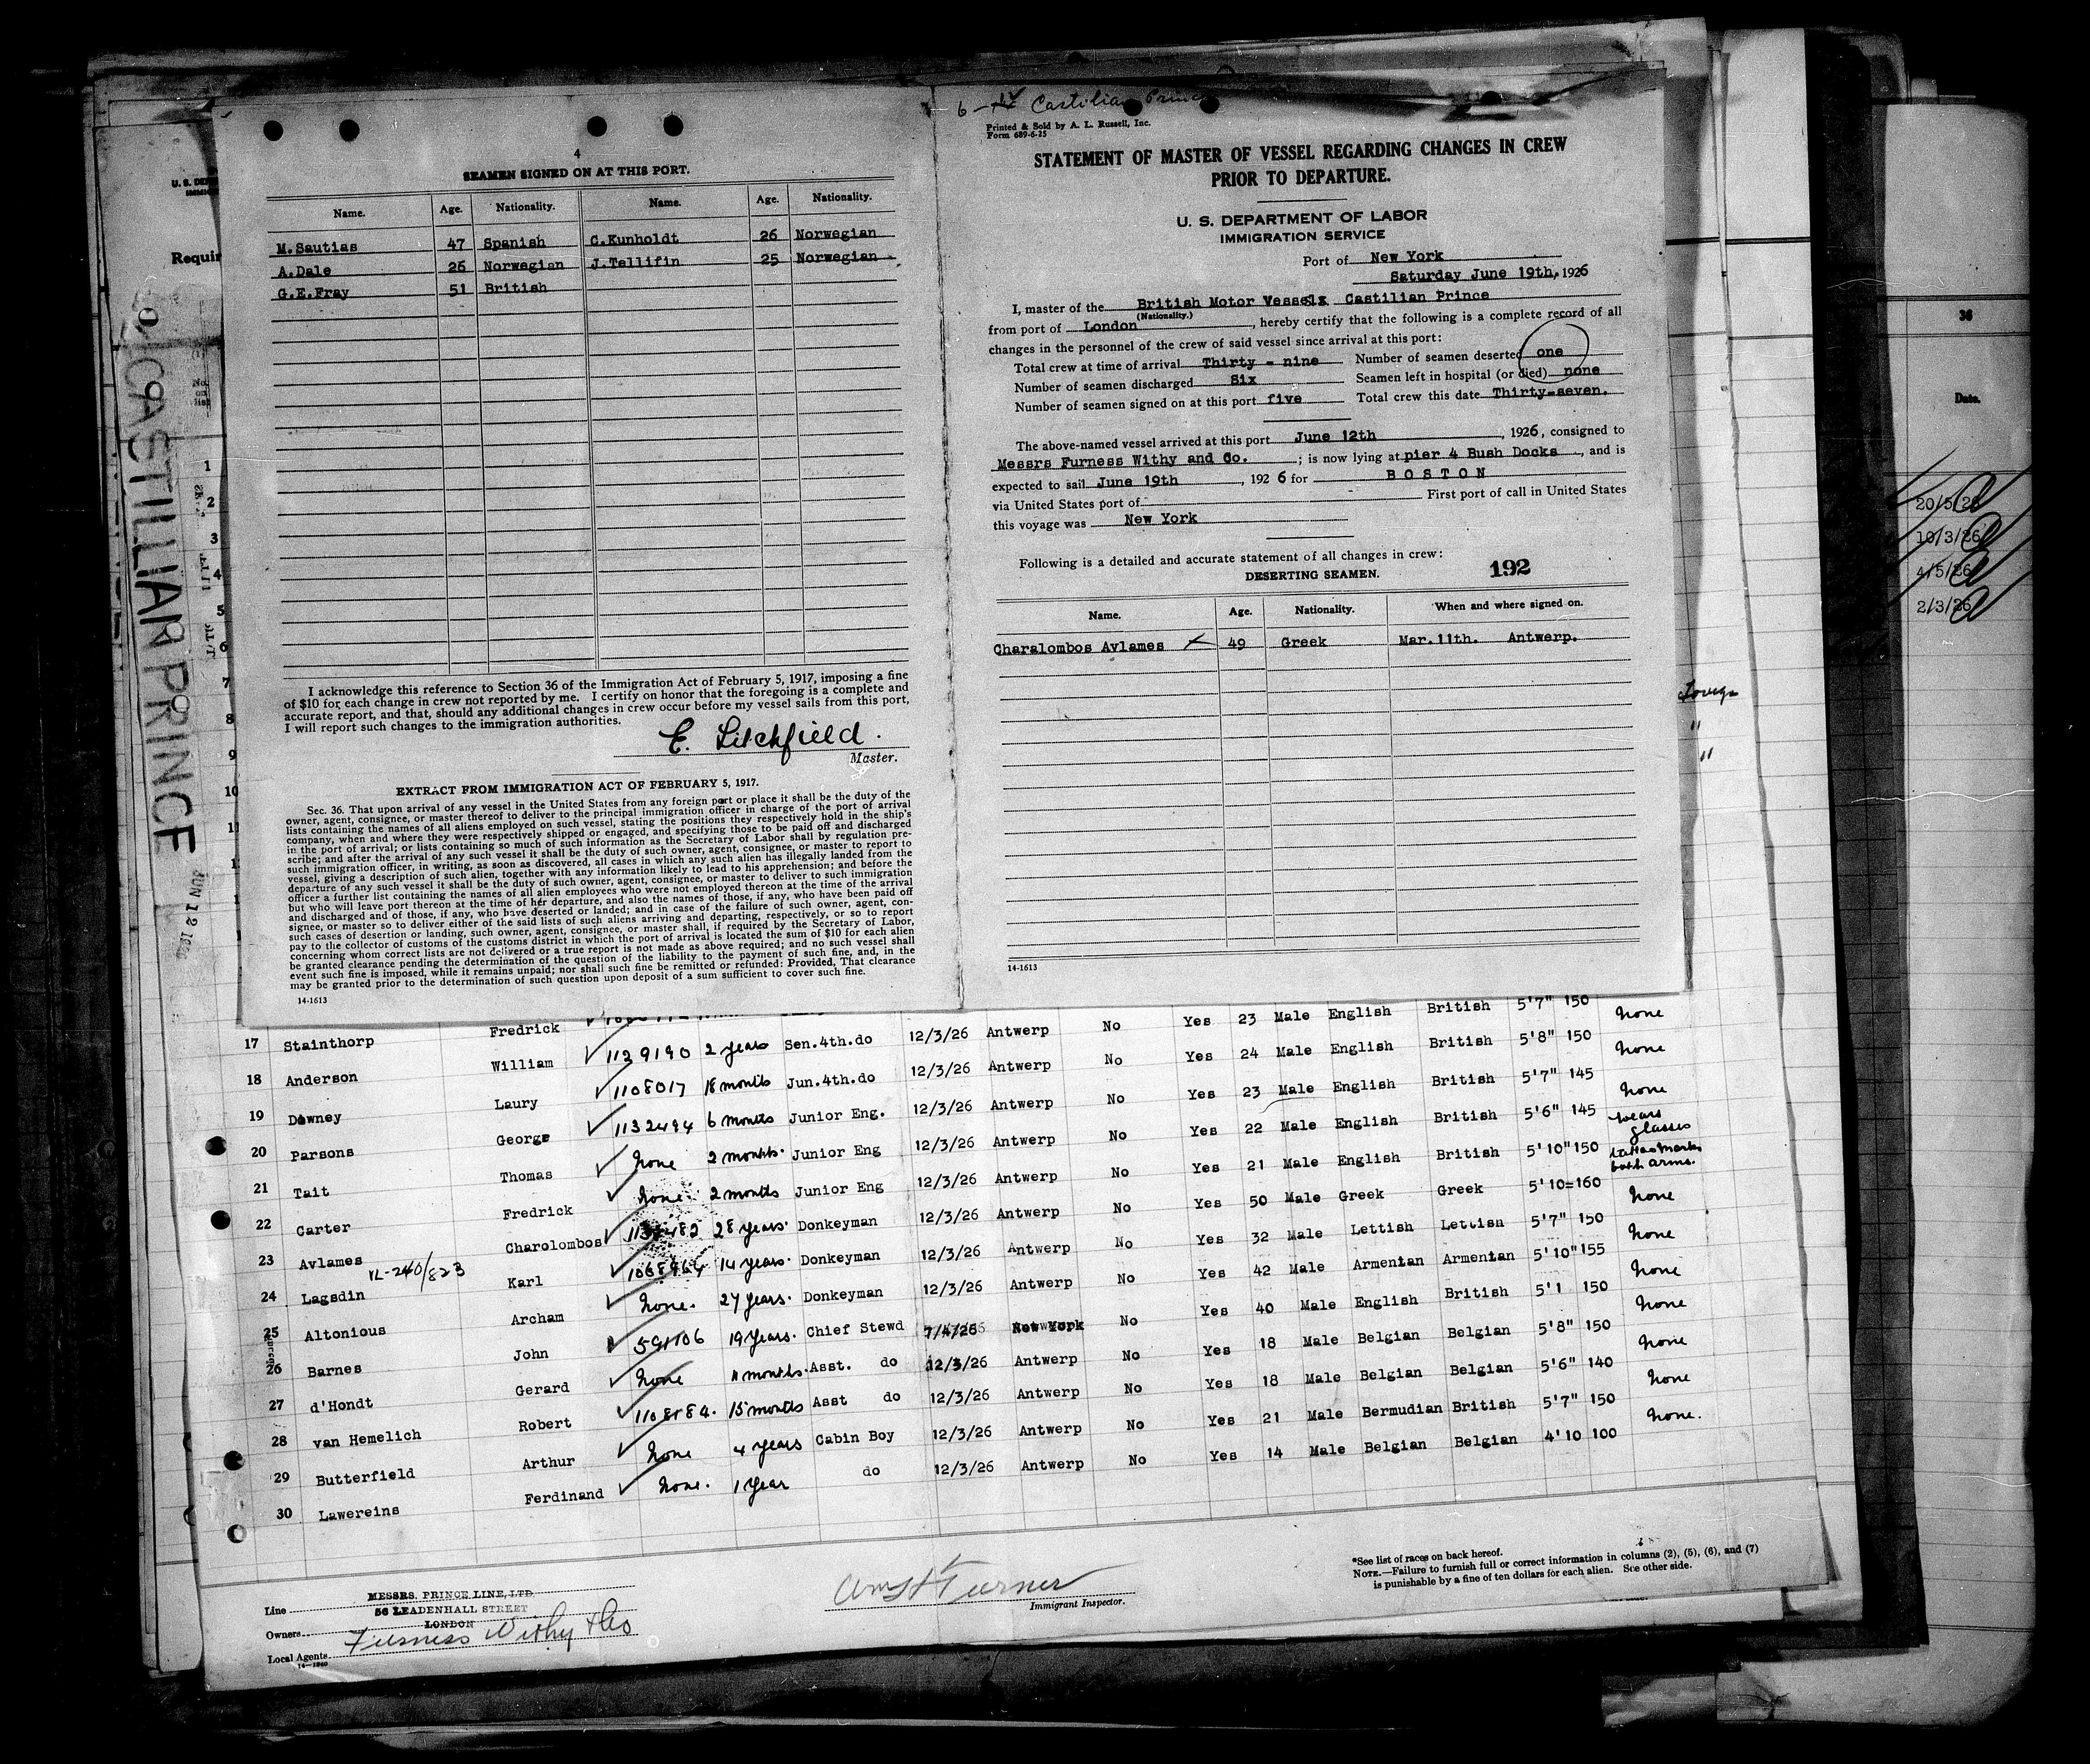 6 - Castilian Prince
4
SEAMEN SIGNED ON AT THIS PORT.
Name. Age. Nationality. Name. Age. Nationality.
M.Sautias 47 Spanish C.Kunholdt 26 Norwegian
A.Dale 26 Norwegian J.Tellifin 25 Norwegian
G.E.Fray 51 British
I acknowledge this reference to Section 36 of the Immigration Act of February 5, 1917, imposing a fine
of $10 for each change in crew not reported by me. I certify on honor that the foregoing is a complete and
accurate report, and that, should any additional changes in crew occur before my vessel sails from this port,
I will report such changes to the immigration authorities.
E. Litchfield.
Master.
EXTRACT FROM IMMIGRATION ACT OF FEBRUARY 5, 1917.
Sec. 36. That upon arrival of any vessel in the United States from any foreign port or place it shall be the duty of the
owner, agent, consignee, or master thereof to deliver to the principal immigration officer in charge of the port of arrival
lists containing the names of all aliens employed on such vessel, stating the positions they respectively hold in the ship's
company, when and where they were respectively shipped or engaged, and specifying those to be paid off and discharged
in the port of arrival; or lists containing so much of such information as the Secretary of Labor shall by regulation pre-
scribe; and after the arrival of any such vessel it shall be the duty of such owner, agent, consignee, or master to report to
such immigration officer, in writing, as soon as discovered, all cases in which any such alien has illegally landed from the
vessel, giving a description of such alien, together with any information likely to lead to his apprehension; and before the
departure of any such vessel it shall be the duty of such owner, agent, consignee, or master to deliver to such immigration
officer a further list containing the names of all alien employees who were not employed thereon at the time of the arrival
but who will leave port thereon at the time of her departure, and also the names of those, if any, who have been paid off
and discharged and of those, if any, who have deserted or landed; and in case of the failure of such owner, agent, con-
signee, or master so to deliver either of the said lists of such aliens arriving and departing, respectively, or so to report
such cases of desertion or landing, such owner, agent, consignee, or master shall, if required by the Secretary of Labor,
pay to the collector of customs of the customs district in which the port of arrival is located the sum of $10 for each alien
concerning whom correct lists are not delivered or a true report is not made as above required; and no such vessel shall
be granted clearance pending the determination of the question of the liability to the payment of such fine, and, in the
event such fine is imposed, while it remains unpaid; nor shall such fine be remitted or refunded: Provided, That clearance
may be granted prior to the determination of such question upon deposit of a sum sufficient to cover such fine.
14-1613
Printed & Sold by A. L. Russell, Inc.
Form 689-6-25
STATEMENT OF MASTER OF VESSEL REGARDING CHANGES IN CREW
PRIOR TO DEPARTURE.
U. S. DEPARTMENT OF LABOR
IMMIGRATION SERVICE
Port of New York
Saturday June 19th, 1926
I, master of the British Motor Vessel Castilian Prince
(Nationality.)
from port of London, hereby certify that the following is a complete record of all
changes in the personnel of the crew of said vessel since arrival at this port:
Total crew at time of arrival Thirty - nine Number of seamen deserted one
Number of seamen discharged Six Seamen left in hospital (or died) none
Number of seamen signed on at this port five Total crew this date Thirty-seven.
The above-named vessel arrived at this port June 12th, 1926, consigned to
Messrs Furness Withy and Co. ; is now lying at pier 4 Bush Docks, and is
expected to sail June 19th, 1926 for BOSTON
via United States port of First port of call in United States
this voyage was New York
Following is a detailed and accurate statement of all changes in crew:
DESERTING SEAMEN. 192
Name. Age. Nationality. When and where signed on.
Charalombos Avlames 49 Greek Mar.11th. Antwerp.
14-1613
CASTILLIAN PRINCE
JUN 12
Requir
1
2
3
4
5
6
7
8
9
10
36
Date.
20/5/26
10/3/26
4/5/26
2/3/26
17 Stainthorp Fredrick
18 Anderson William 1129190 2 years Sen.4th.do 12/3/26 Antwerp No Yes 23 Male English British 5'7" 150 None
19 Downey Laury 1108017 18 months Jun.4th.do 12/3/26 Antwerp No Yes 24 Male English British 5'8" 150 None
20 Parsons George 1132494 6 months Junior Eng. 12/3/26 Antwerp No Yes 23 Male English British 5'7" 145 None
21 Tait Thomas None 2 months Junior Eng 12/3/26 Antwerp No Yes 22 Male English British 5'6" 145 wears glasses
22 Carter Fredrick None. 2 months Junior Eng 12/3/26 Antwerp No Yes 21 Male English British 5'10" 150 tattoo marks both arms.
23 Avlames Charolombos 28 years Donkeyman 12/3/26 Antwerp No Yes 50 Male Greek Greek 5'10=160 None
VL-240/823
24 Lagsdin Karl 1068964 14 years Donkeyman 12/3/26 Antwerp No Yes 32 Male Lettish Lettish 5'7" 150 None
25 Altonious Archam None. 27 years. Donkeyman 12/3/26 Antwerp No Yes 42 Male Armenian Armenian 5'10" 155 None
26 Barnes John 591106 19 years. Chief Stewd 7/4/26 New York No Yes 40 Male English British 5'1 150 None
27 d'Hondt Gerard None 11 months. Asst. do 12/3/26 Antwerp No Yes 18 Male Belgian Belgian 5'8" 150 None
28 van Hemelich Robert 1108184. 15 months Asst do 12/3/26 Antwerp No Yes 18 Male Belgian Belgian 5'6" 140 None
29 Butterfield Arthur None 4 years Cabin Boy 12/3/26 Antwerp No Yes 21 Male Bermudian British 5'7" 150 None.
30 Lawereins Ferdinand None. 1 Year do 12/3/26 Antwerp No Yes 14 Male Belgian Belgian 4'10 100
Line MESSRS. PRINCE LINE, LTD
56 LEADENHALL STREET
Owners LONDON
Local Agents Furness Withy & Co
14-1240
Turner
Immigrant Inspector.
*See list of races on back hereof.
NOTE.—Failure to furnish full or correct information in columns (2), (5), (6), and (7)
is punishable by a fine of ten dollars for each alien. See other side.